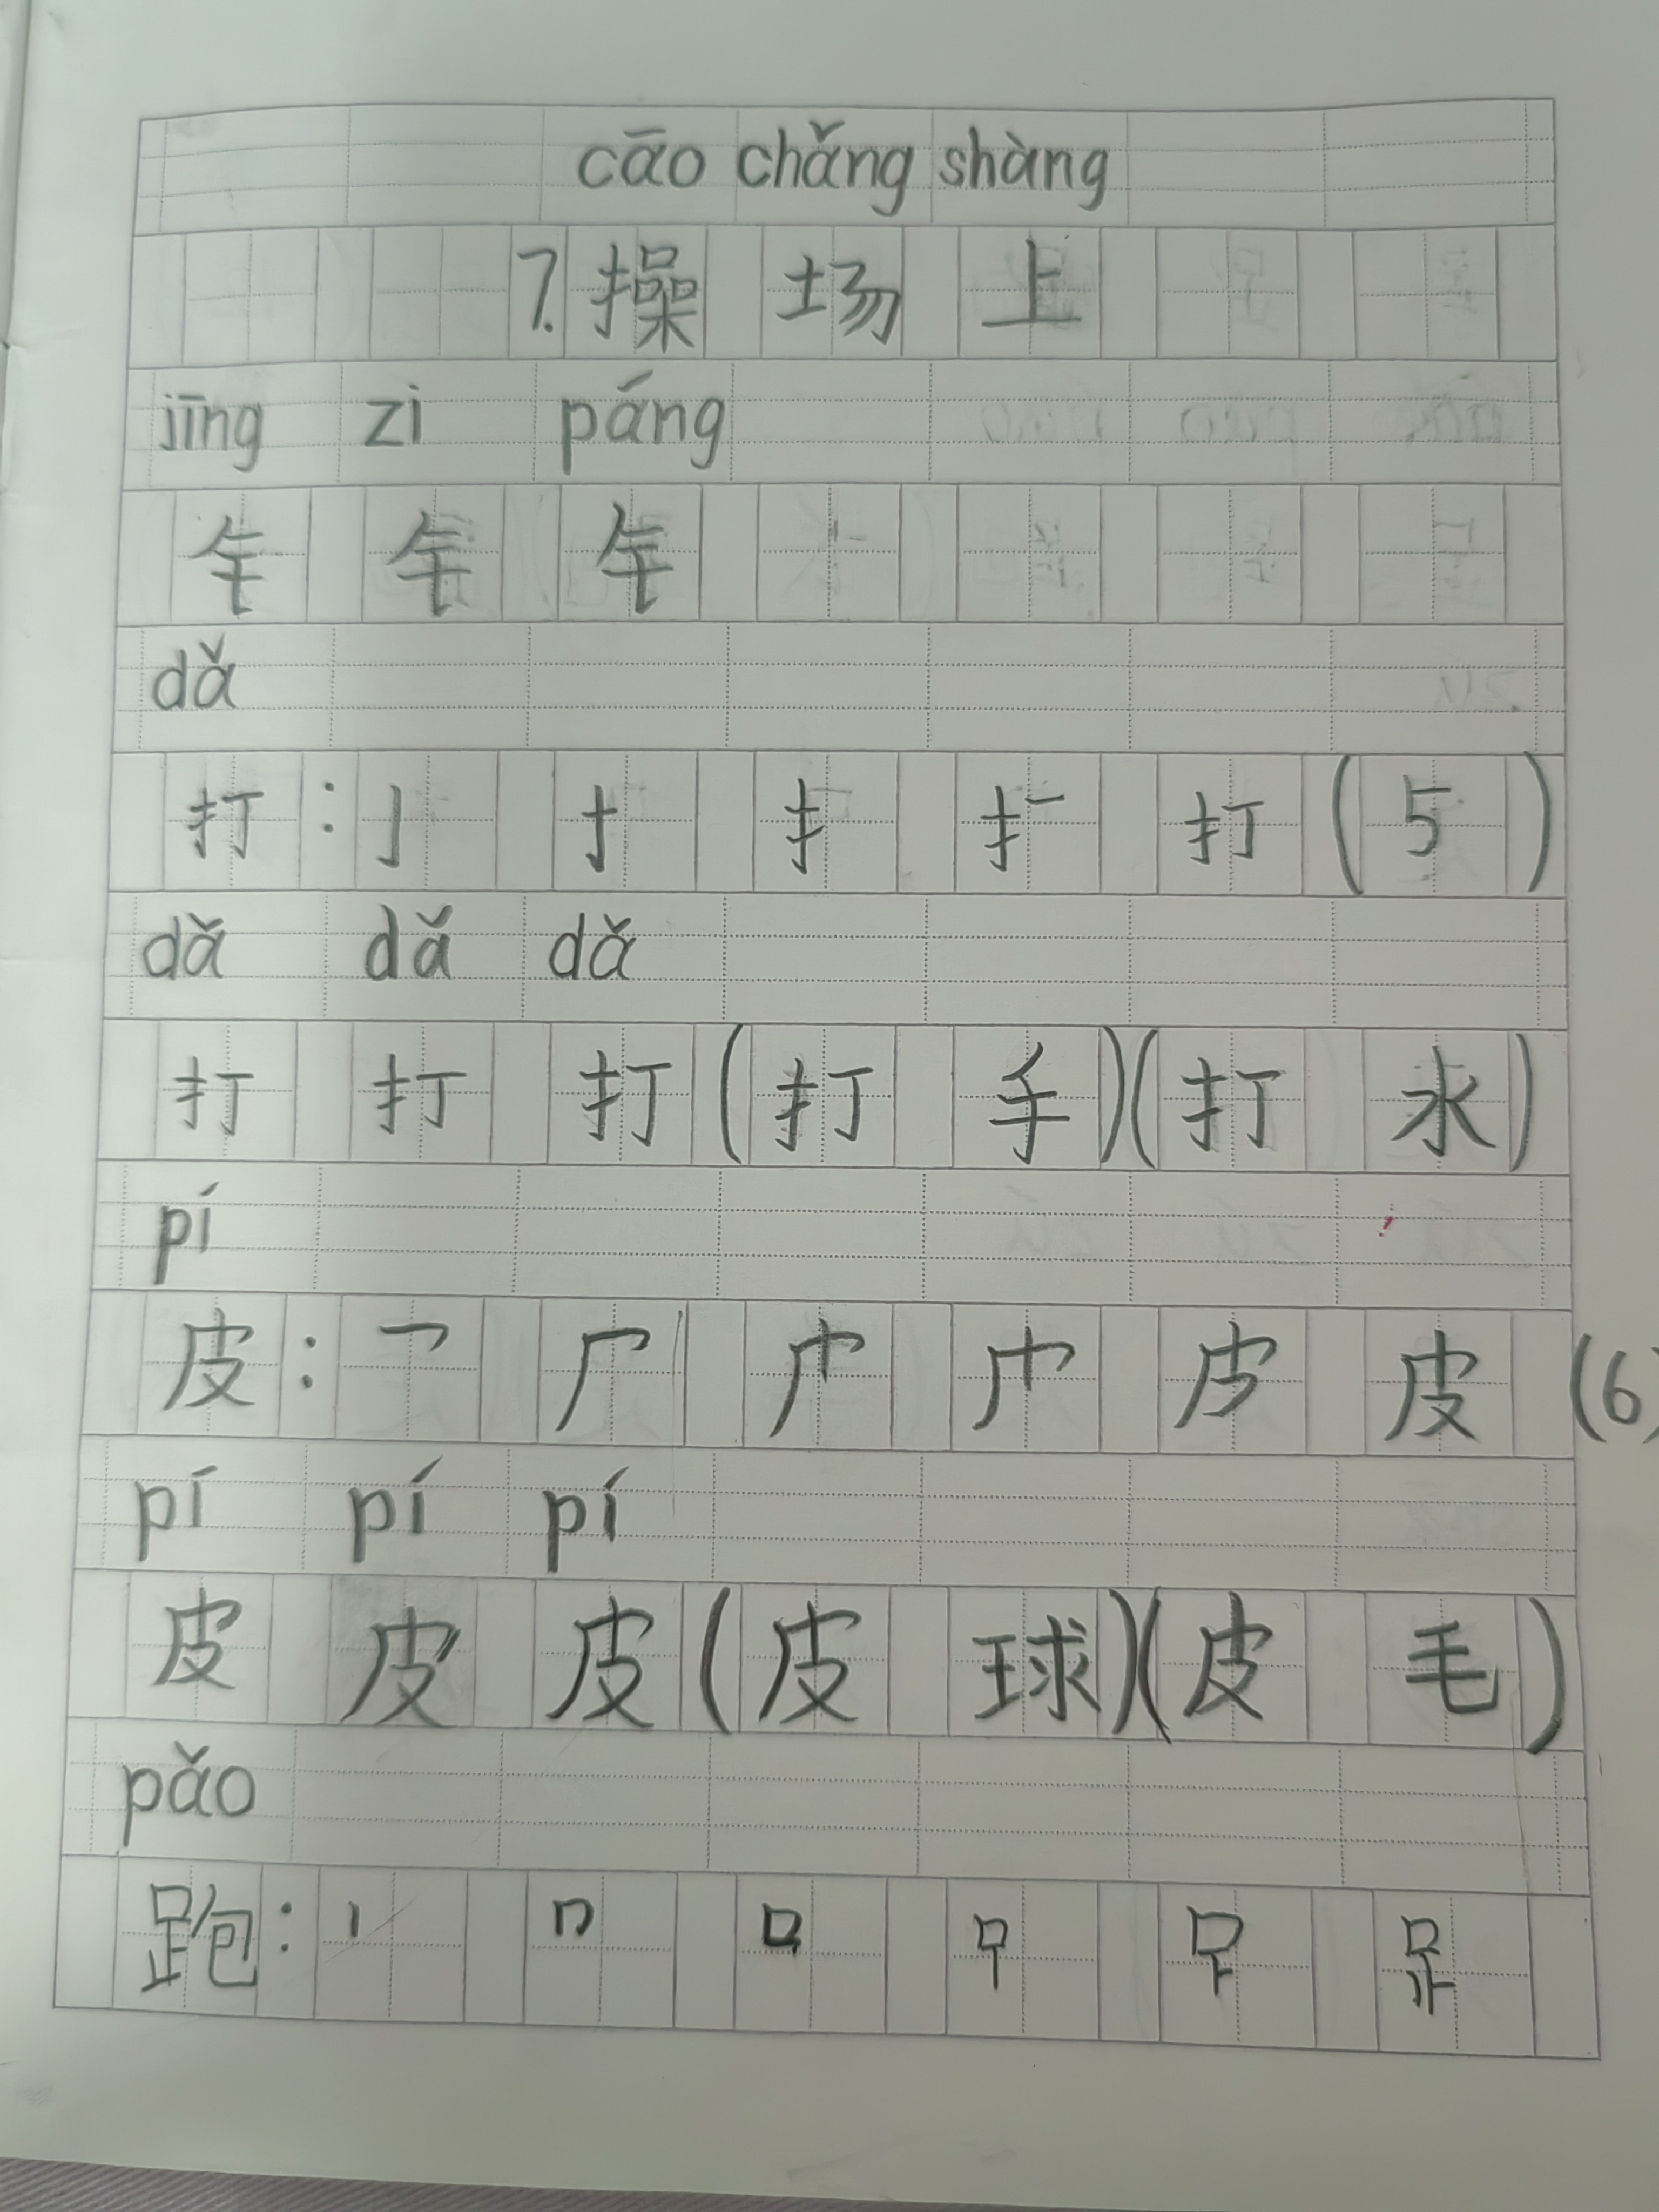 cāo chǎng shàng
7.操场上
jīng zì páng
钅钅钅
dǎ
打:亅 十 扌 打(5)
dǎ dǎ dǎ
打打打(打手)(打水)
pí
皮:皮(6)
pí pí pí
皮皮皮(皮球)(皮毛)
pǎo
跑:丨 口